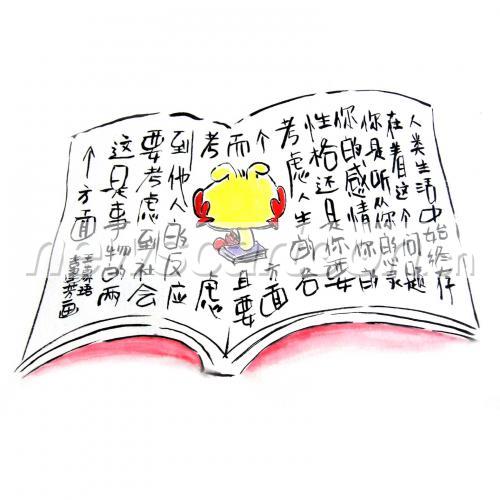 人类生活中始终存
在着这个问题
你是听从你的求
你的感情你的
性格还是你要
考虑人生的各
个方面
而且要
考虑
到他人的反应
要考虑到社会
这是事物的两
个方面